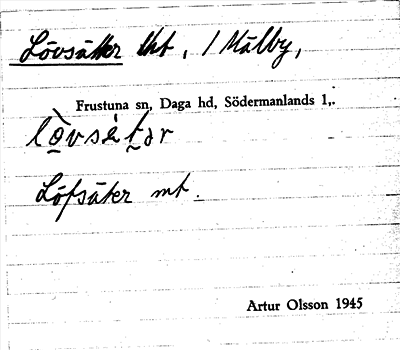 Lövsätter tht, / Mälby,
Frustuna sn, Daga hd, Södermanlands l,.
lòvsètər
Löfsäter mt.
Artur Olsson 1945